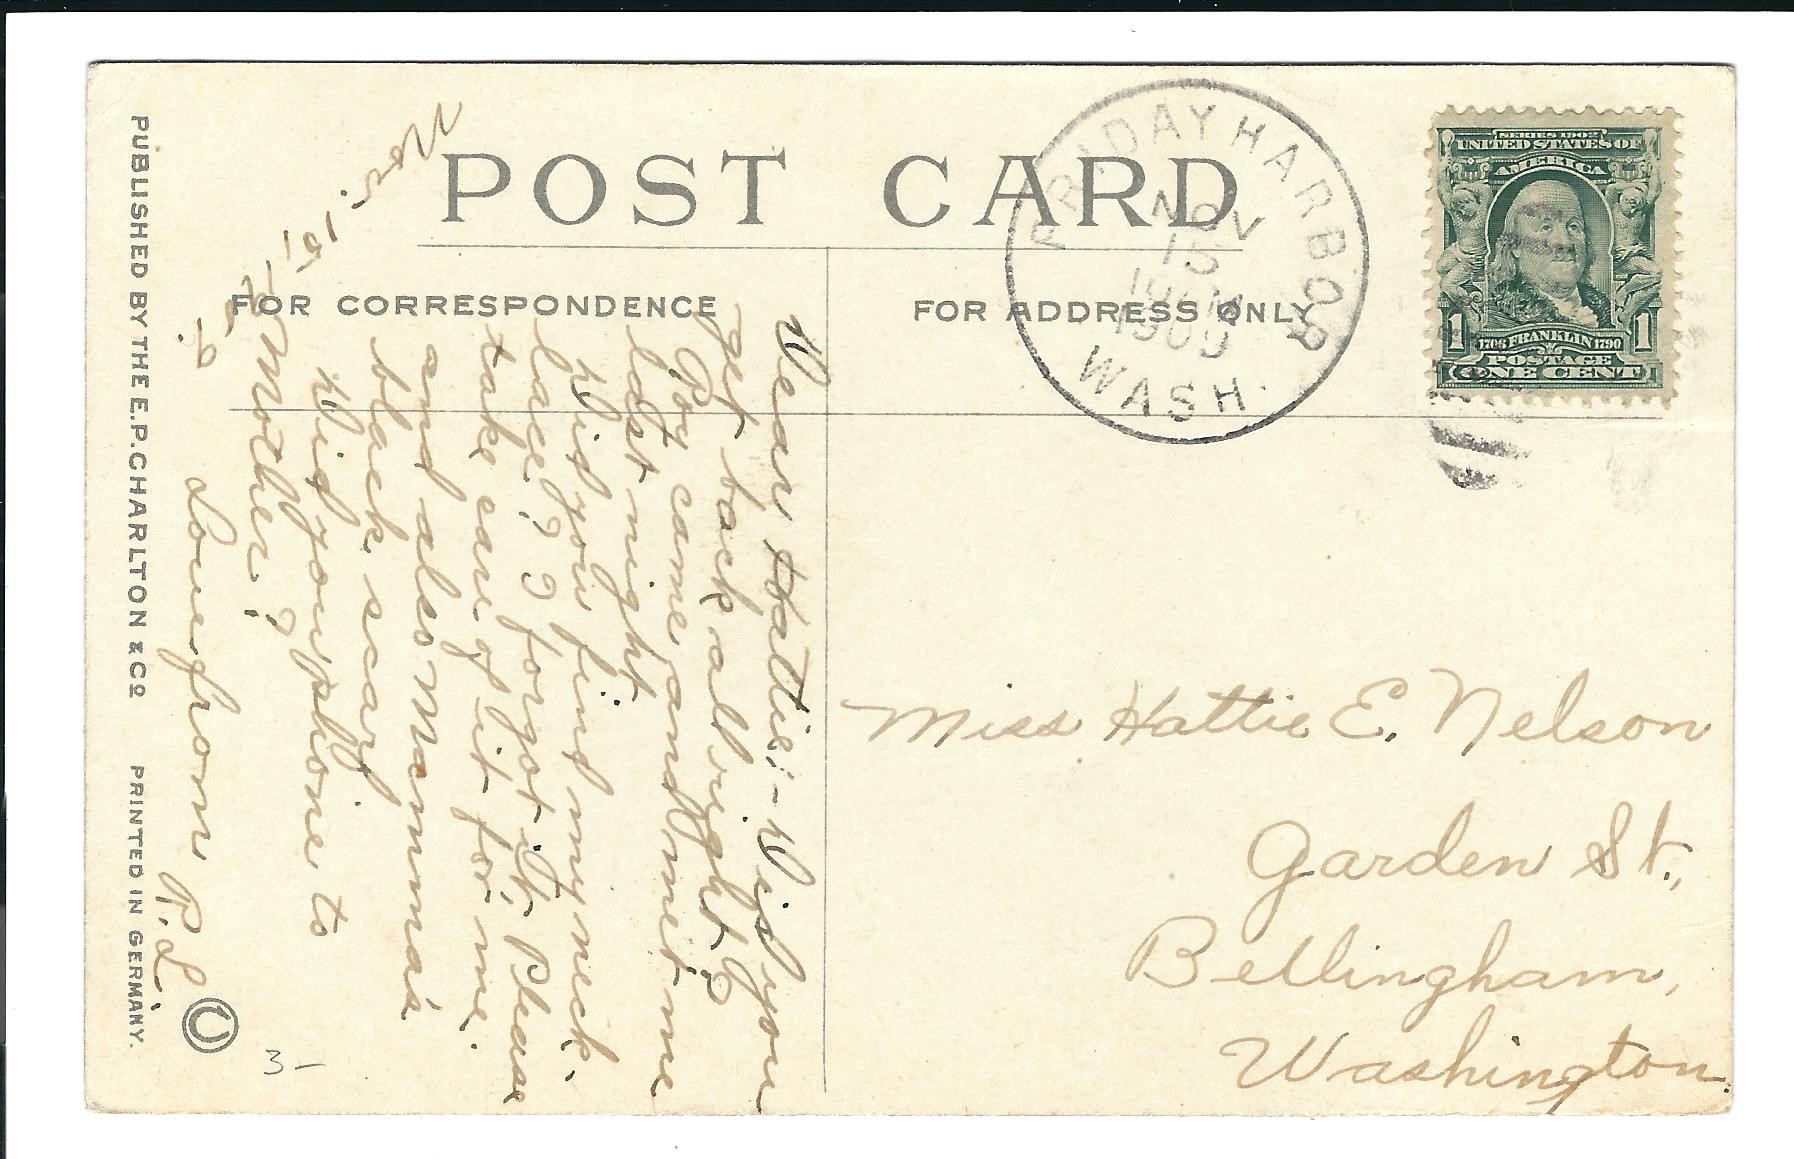 POST CARD
FOR CORRESPONDENCE
FOR ADDRESS ONLY
FRIDAY HARBOR
NOV
15
1909
WASH.
SERIES 1902
UNITED STATES OF
AMERICA
1 1
1706 FRANKLIN 1790
POSTAGE
ONE CENT
Nov. 15,
Dear Hattie:- Did you
get back all right?
Roy came and met me
last night
Did you find my neck-
lace? I forgot it. Please
take care of it for me.
and also Mamma's
black scarf
Did you phone to
Mother?
Love from R. L.
Miss Hattie E. Nelson
Garden St.,
Bellingham,
Washington.
PUBLISHED BY THE E.P. CHARLTON & CO
PRINTED IN GERMANY.
3-